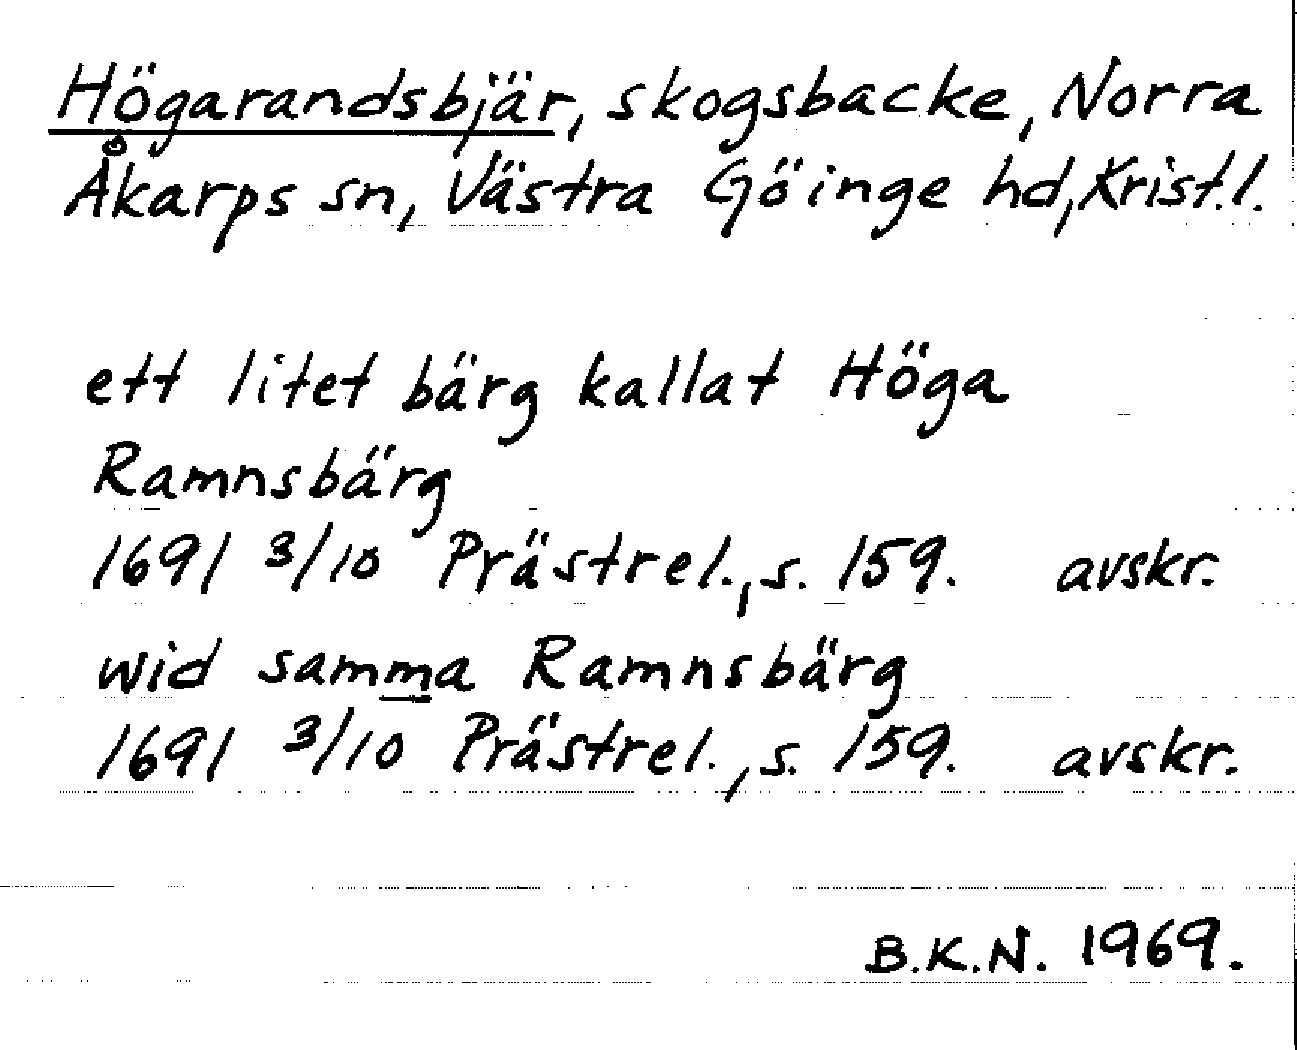 Högarandsbjär, skogsbacke, Norra
Åkarps sn, Västra Göinge hd, Krist.l.
ett litet bärg kallat Höga
Ramnsbärg
1691 3/10 Prästrel., s. 159. avskr.
wid samma Ramnsbärg
1691 3/10 Prästrel., s. 159. avskr.
B.K.N. 1969.